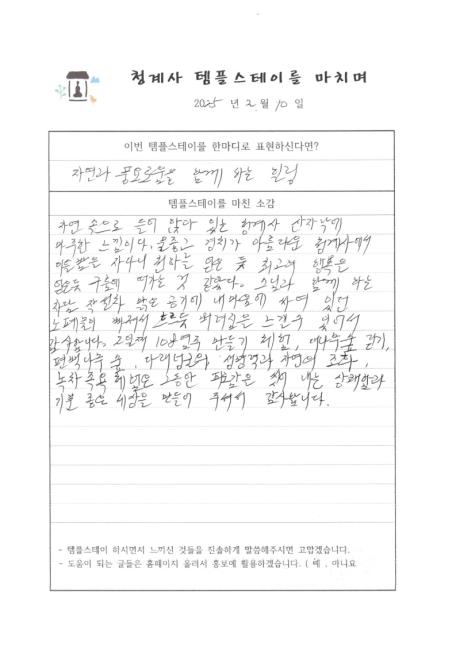 청계사 템플스테이를 마치며
2025 년 2 월 10 일
이번 템플스테이를 한마디로 표현하신다면?
자연과 풍요로움을 함께 하는 힐링
템플스테이를 마친 소감
자연 속으로 들어 앉다 있는 청계사 산자락에
느낌이다. 경치가 아름다운 청계사에서
자니 최고의 행복은
구름에 떠가는 것 같았다. 스님과 함께 하는
차담 맑은 공기에 내 마음에 쌓여 있던
노폐물이 빠져서 흐르듯 느낄 수 있어서
감사합니다. 2일째 108염주 만들기 체험, 대나무숲 걷기,
편백나무 숲, 자연의 조화,
녹차 족욕 체험으로 그동안 피로감은 씻어 내는 상쾌함과
기분 좋은 세상을 만들어 주셔서 감사합니다.
- 템플스테이 하시면서 느끼신 것들을 진솔하게 말씀해주시면 고맙겠습니다.
- 도움이 되는 글들은 홈페이지 올려서 홍보에 활용하겠습니다. ( 예 , 아니요